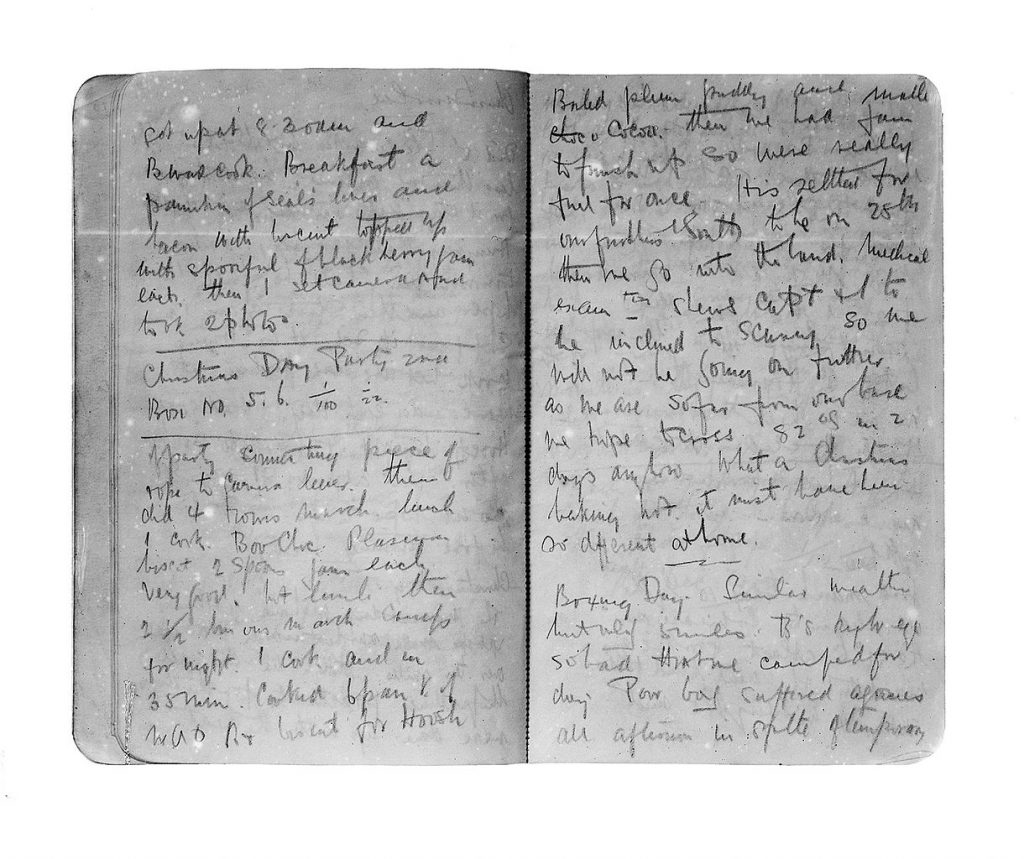 Got up at 8 30am and
B was cook. Breakfast a
of seal's liver and
bacon with biscuit topped up
with spoonful of blackberry jam
each. then I set camera and
took 2 photos.
Christmas Day Party
Box No. 5. 6. 1/100 22.
of party connecting piece of
rope to camera lever. then
did 4 hours march. lunch
I cook. Bov Choc. Plasmon
biscuit 2 spoons jam each
very good. hot lunch then
2 1/2 hours march camps
for night I cook and in
35 min. Cooked
biscuit for Hoosh
Boiled plum pudding and made
cocoa. then we had jam
to finish up so were really
full for once. It is settled for
our furthest South to be on 28th
then we go into the land. Medical
exam shows Capt & I to
be inclined to scurvy so we
will not be going on further
as we are so far from our base
we hope to cross 82 in 2
days anyhow. What a Christmas
baking hot. it must have been
so different at home.
Boxing Day. Similar weather
but only miles. B's right eye
so bad that we camped for
day. Poor boy suffered agonies
all afternoon in spite of temporary